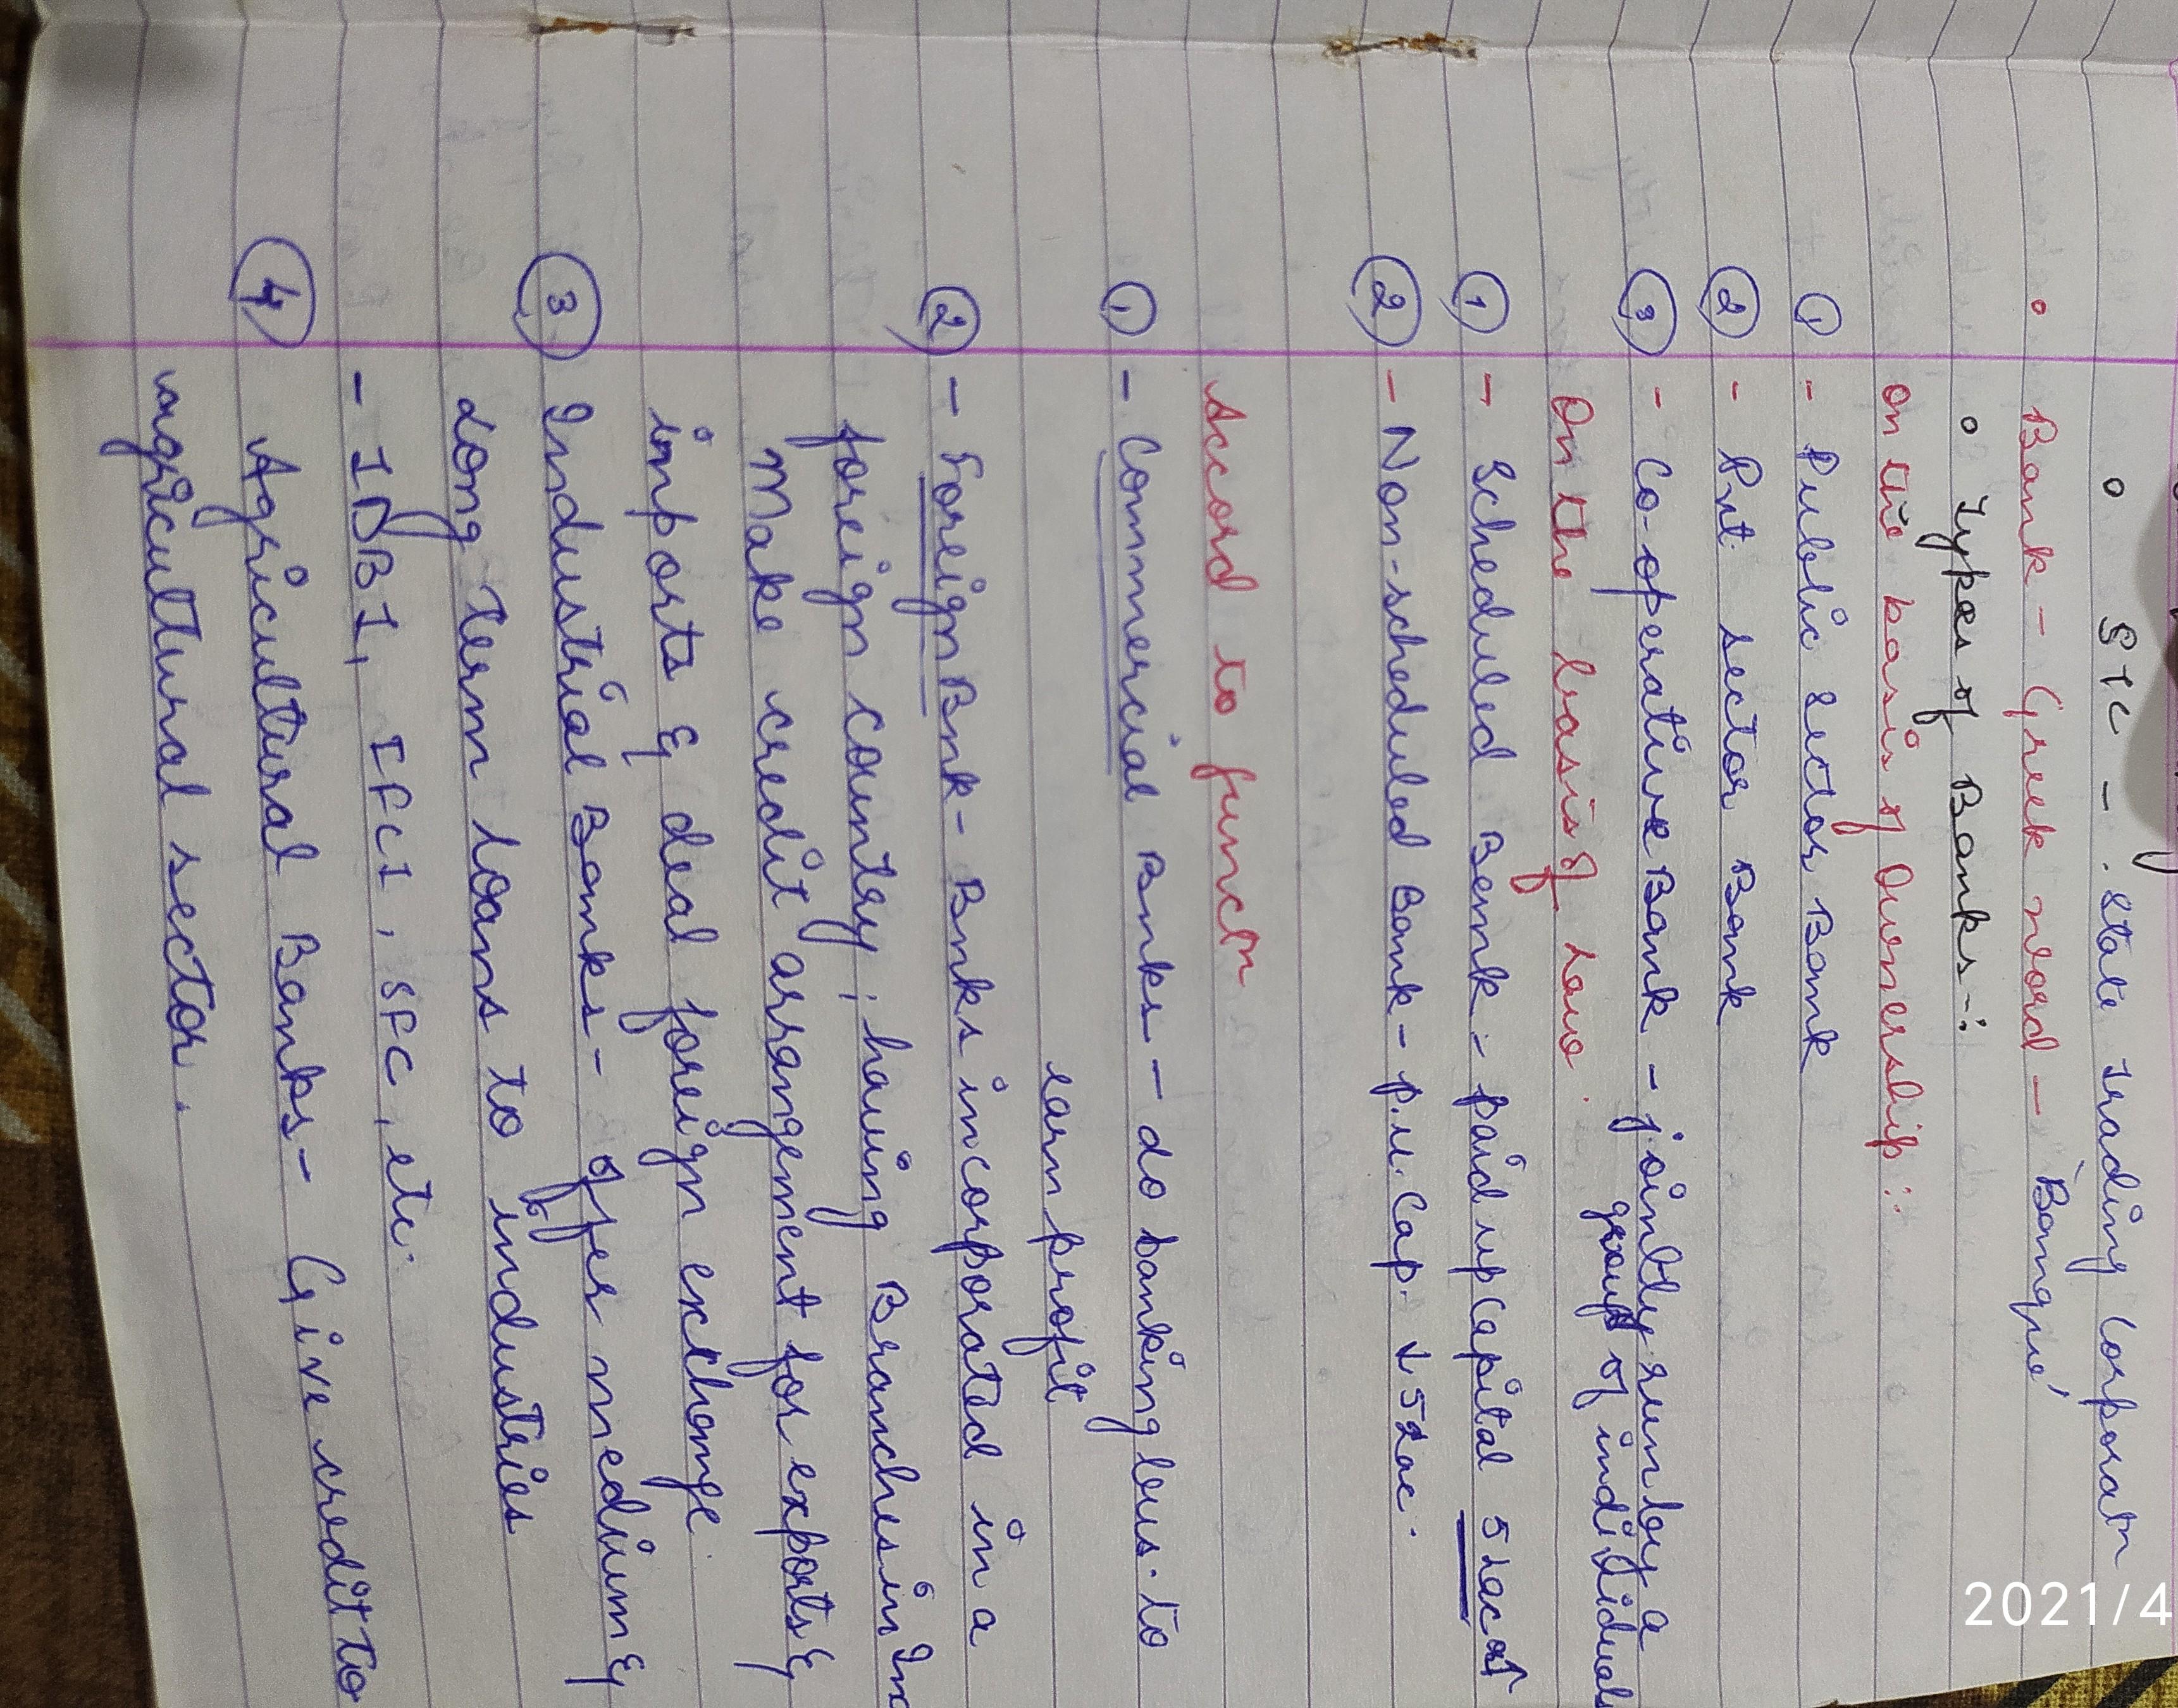 • STC - State Trading Corporatn
• Bank - Greek word - 'Banque'
• Types of Banks -:
on the basis of Ownership :-
① - Public sector Bank
② - Pvt. sector Bank
③ - Co-operative Bank - jointly run by a
group of individual
On the basis of Law.
① - Scheduled Bank :- paid up Capital 5 Lac or
② - Non-scheduled Bank - p.u. Cap. < 5 Lac.
Accord to functn
① - Commercial Banks - do banking bus. to
earn profit
② - Foreign Bnk - Banks incorporated in a
foreign country, having Branches in In
Make credit arrangement for exports &
imports & deal foreign exchange.
③ Industrial Banks - offer medium &
Long term loans to industries
- IDBI, IFCI, SFC, etc.
④ Agricultural Banks - Give credit to
agricultural sector.
2021/4